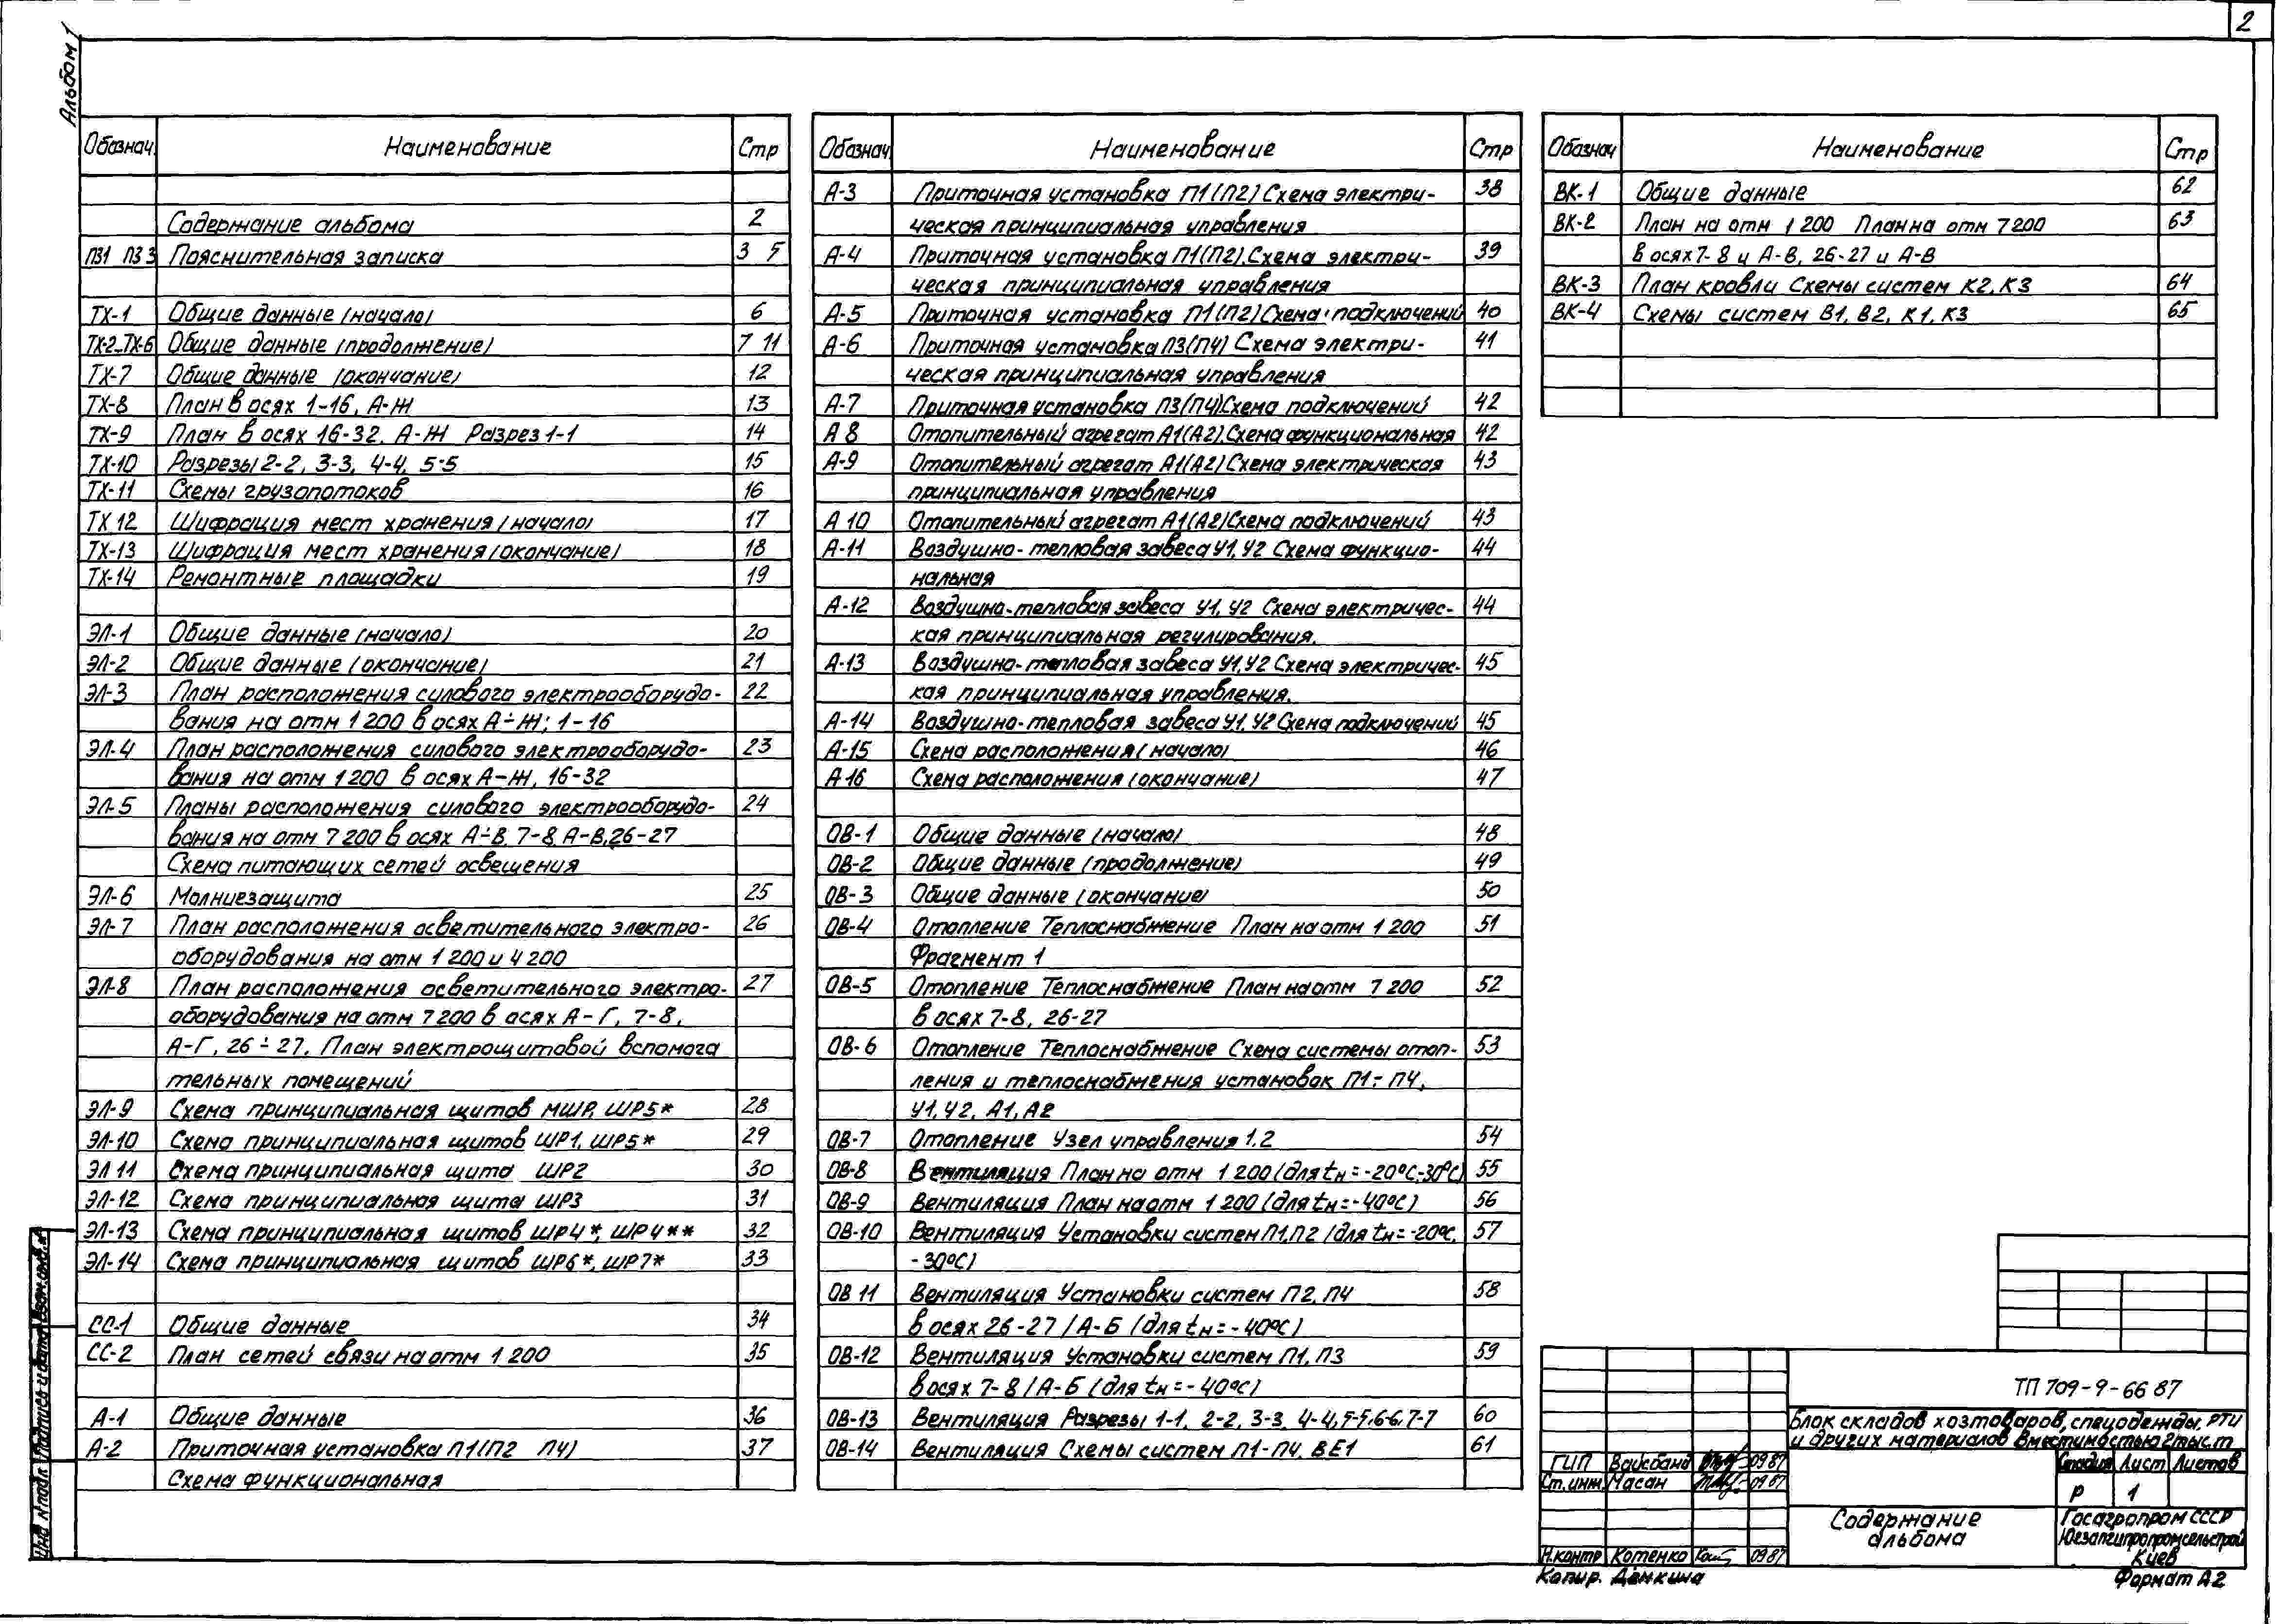 2
Альбом 1
Обознач. Наименование Стр
Содержание альбома 2
ПЗ1 ПЗ3 Пояснительная записка 3 5
ТХ-1 Общие данные (начало) 6
ТХ-2-ТХ-6 Общие данные (продолжение) 7 11
ТХ-7 Общие данные (окончание) 12
ТХ-8 План в осях 1-16, А-Ж 13
ТХ-9 План в осях 16-32, А-Ж Разрез 1-1 14
ТХ-10 Разрезы 2-2, 3-3, 4-4, 5-5 15
ТХ-11 Схемы грузопотоков 16
ТХ 12 Шифрация мест хранения (начало) 17
ТХ-13 Шифрация мест хранения (окончание) 18
ТХ-14 Ремонтные площадки 19
ЭЛ-1 Общие данные (начало) 20
ЭЛ-2 Общие данные (окончание) 21
ЭЛ-3 План расположения силового электрооборудо- 22
вания на отм 1 200 в осях А÷Ж; 1-16
ЭЛ-4 План расположения силового электрооборудо- 23
вания на отм 1 200 в осях А-Ж, 16-32
ЭЛ-5 Планы расположения силового электрооборудо- 24
вания на отм 7 200 в осях А÷В, 7-8, А-В, 26-27
Схема питающих сетей освещения
ЭЛ-6 Молниезащита 25
ЭЛ-7 План расположения осветительного электро- 26
оборудования на отм 1 200 и 4 200
ЭЛ-8 План расположения осветительного электро- 27
оборудования на отм 7 200 в осях А-Г, 7-8,
А-Г, 26÷27. План электрощитовой вспомога
тельных помещений
ЭЛ-9 Схема принципиальная щитов МШР, ШР5* 28
ЭЛ-10 Схема принципиальная щитов ШР1, ШР5* 29
ЭЛ 11 Схема принципиальная щита ШР2 30
ЭЛ-12 Схема принципиальная щита ШР3 31
ЭЛ-13 Схема принципиальная щитов ШР4*, ШР4** 32
ЭЛ-14 Схема принципиальная щитов ШР6*, ШР7* 33
СС-1 Общие данные 34
СС-2 План сетей связи на отм 1 200 35
А-1 Общие данные 36
А-2 Приточная установка П1(П2 П4) 37
Схема функциональная
Обознач. Наименование Стр
А-3 Приточная установка П1(П2) Схема электри- 38
ческая принципиальная управления
А-4 Приточная установка П1(П2). Схема электри- 39
ческая принципиальная управления
А-5 Приточная установка П1(П2) Схема подключений 40
А-6 Приточная установка П3(П4) Схема электри- 41
ческая принципиальная управления
А-7 Приточная установка П3(П4) Схема подключений 42
А 8 Отопительный агрегат А1(А2). Схема функциональная 42
А-9 Отопительный агрегат А1(А2) Схема электрическая 43
принципиальная управления
А 10 Отопительный агрегат А1(А2) Схема подключений 43
А-11 Воздушно-тепловая завеса У1, У2 Схема функцио- 44
нальная
А-12 Воздушно-тепловая завеса У1, У2 Схема электричес- 44
кая принципиальная регулирования.
А-13 Воздушно-тепловая завеса У1, У2 Схема электричес- 45
кая принципиальная управления.
А-14 Воздушно-тепловая завеса У1, У2 Схема подключений 45
А-15 Схема расположения (начало) 46
А 16 Схема расположения (окончание) 47
ОВ-1 Общие данные (начало) 48
ОВ-2 Общие данные (продолжение) 49
ОВ-3 Общие данные (окончание) 50
ОВ-4 Отопление Теплоснабжение План на отм 1 200 51
Фрагмент 1
ОВ-5 Отопление Теплоснабжение План на отм 7 200 52
в осях 7-8, 26-27
ОВ-6 Отопление Теплоснабжение Схема системы отоп- 53
ления и теплоснабжения установок П1÷П4,
У1, У2, А1, А2
ОВ-7 Отопление Узел управления 1.2 54
ОВ-8 Вентиляция План на отм 1 200 (для tн=-20°С,-30°С) 55
ОВ-9 Вентиляция План на отм 1 200 (для tн=-40°С) 56
ОВ-10 Вентиляция Установки систем П1, П2 (для tн=-20°С, 57
-30°С)
ОВ 11 Вентиляция Установки систем П2, П4 58
в осях 26-27 / А-Б (для tн=-40°С)
ОВ-12 Вентиляция Установки систем П1, П3 59
в осях 7-8 / А-Б (для tн=-40°С)
ОВ-13 Вентиляция Разрезы 1-1, 2-2, 3-3, 4-4, 5-5, 6-6, 7-7 60
ОВ-14 Вентиляция Схемы систем П1-П4, ВЕ1 61
Обознач Наименование Стр
ВК-1 Общие данные 62
ВК-2 План на отм 1 200 План на отм 7 200 63
в осях 7-8 и А-В, 26-27 и А-В
ВК-3 План кровли Схемы систем К2, К3 64
ВК-4 Схемы систем В1, В2, К1, К3 65
ТП 709-9-66 87
Блок складов хозтоваров, спецодежды, РТИ
и других материалов вместимостью 2 тыс.т
ГИП Вайсбанд 09 87
Ст. инж. Масан 09 87
Н.контр Котенко 09 87
Стадия Лист Листов
Р 1
Содержание
альбома
Госагропром СССР
Югзапгипропромсельстрой
Киев
Копир. Демкина
Формат А2
Инв № подл Подпись и дата Взам.инв.№